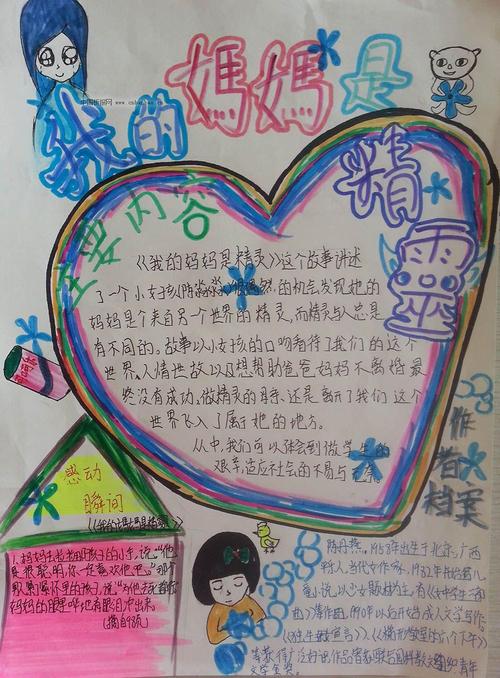 我的媽媽是
精靈
中国板报网 www.cnbanbao.cn
主要内容
《我的妈妈是精灵》这个故事讲述
了一个小女孩(陈淼淼)偶然的机会发现她的
妈妈是个来自另一个世界的精灵,而精灵与人总是
有不同的。故事以小女孩的口吻看待了我们的这个
世界、人情世故以及想帮助爸爸妈妈不离婚最
终没有成功,做精灵的妈妈,还是离开了我们这个
世界飞入了属于她的地方。
从中,我们可以体会到做学生的
艰辛,适应社会的不易与
感动
瞬间
《我的妈妈是精灵》
说,"他
是很聪明,你一定喜欢他吧。"那个
妈妈的眼里
(摘自98页)
作者档案
陈丹燕,1958年出生于北京,广西
人,当代文作家,1982年开始
说,以少女题材为主,有《女中学生
》等作品,1990年以后开始成人文学写作,
《独生女宣言》、《
获得广泛好 青年
文学金奖。